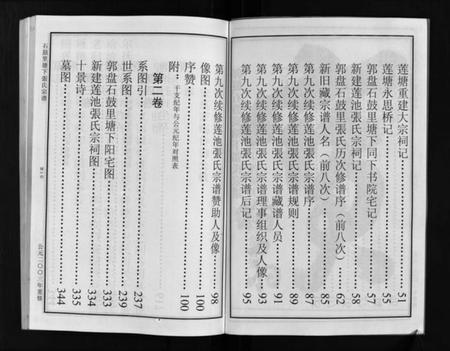 莲塘重建大宗祠记……51
莲塘永思桥记……55
郭盘石鼓里塘下同下书院宅记……57
新建莲池張氏宗祠记……58
郭盘石鼓里張氏历次修谱序（前八次）……62
新旧藏宗谱人名（前八次）……85
第九次续修莲池張氏宗谱序……87
第九次续修莲池張氏宗谱规则……89
第九次续修莲池張氏宗谱藏谱人员……91
第九次续修莲池張氏宗谱理事组织及人像……93
第九次续修莲池張氏宗谱后记……95
第九次续修莲池張氏宗谱赞助人及像……98
像图……100
序赞……100
附：干支纪年与公元纪年对照表
第二卷
系图引……237
世系图……239
郭盘石鼓里塘下阳宅图……333
新建莲池張氏宗祠图……334
十景诗……335
墓图……344
石鼓里塘下張氏宗谱
公元二〇〇三年重修